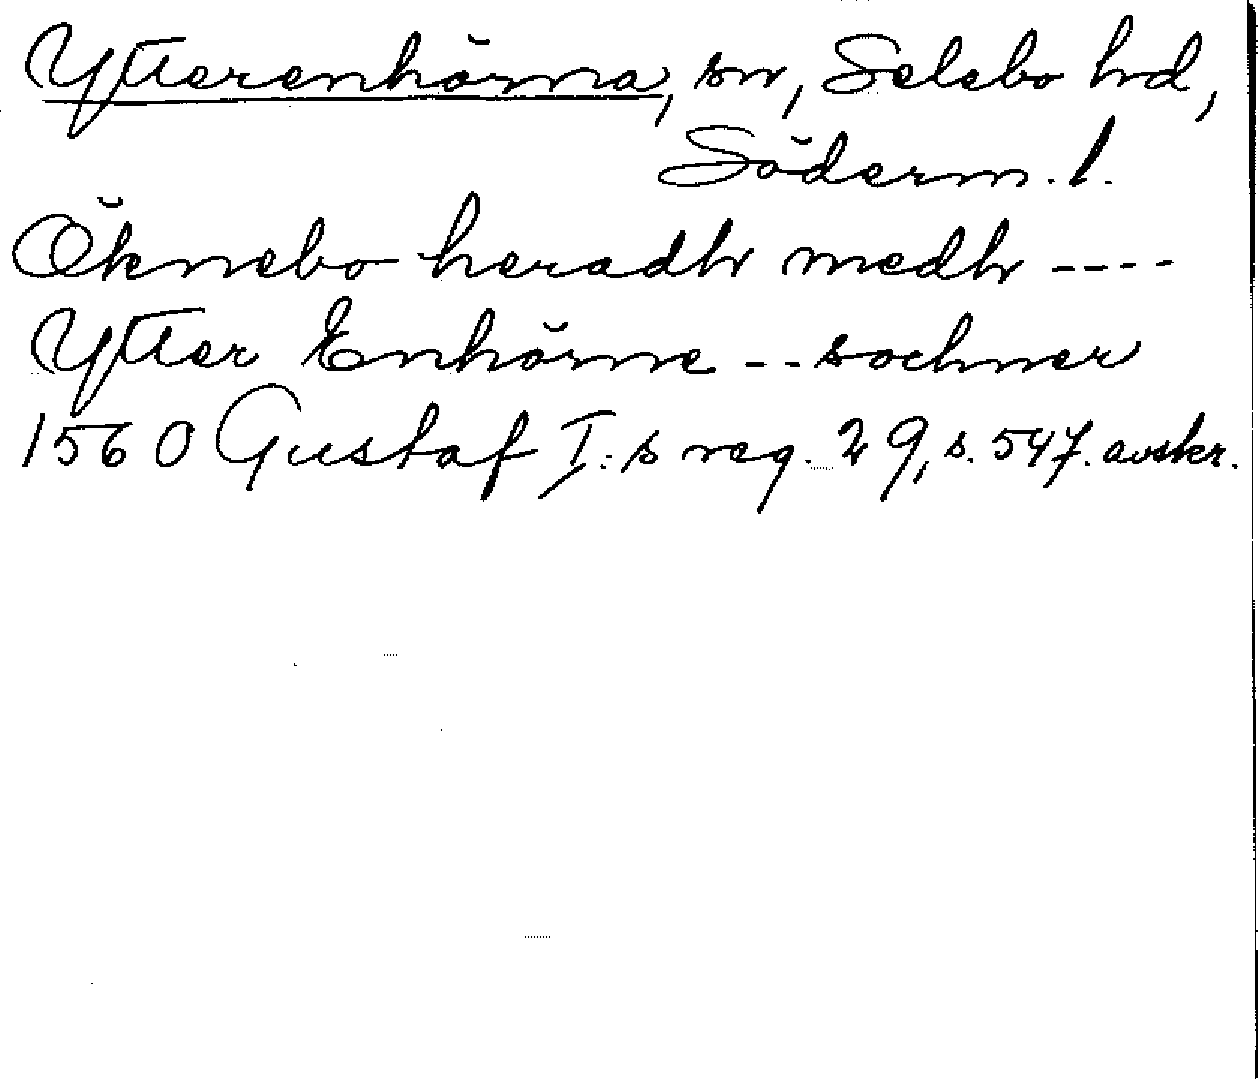 Ytterenhörna, sn, Selebo hrd,
Söderm. l.
Öknebo heradh medh ----
Ytter Enhörne -- sochner
1560 Gustaf I:s reg. 29, s. 547. avskr.